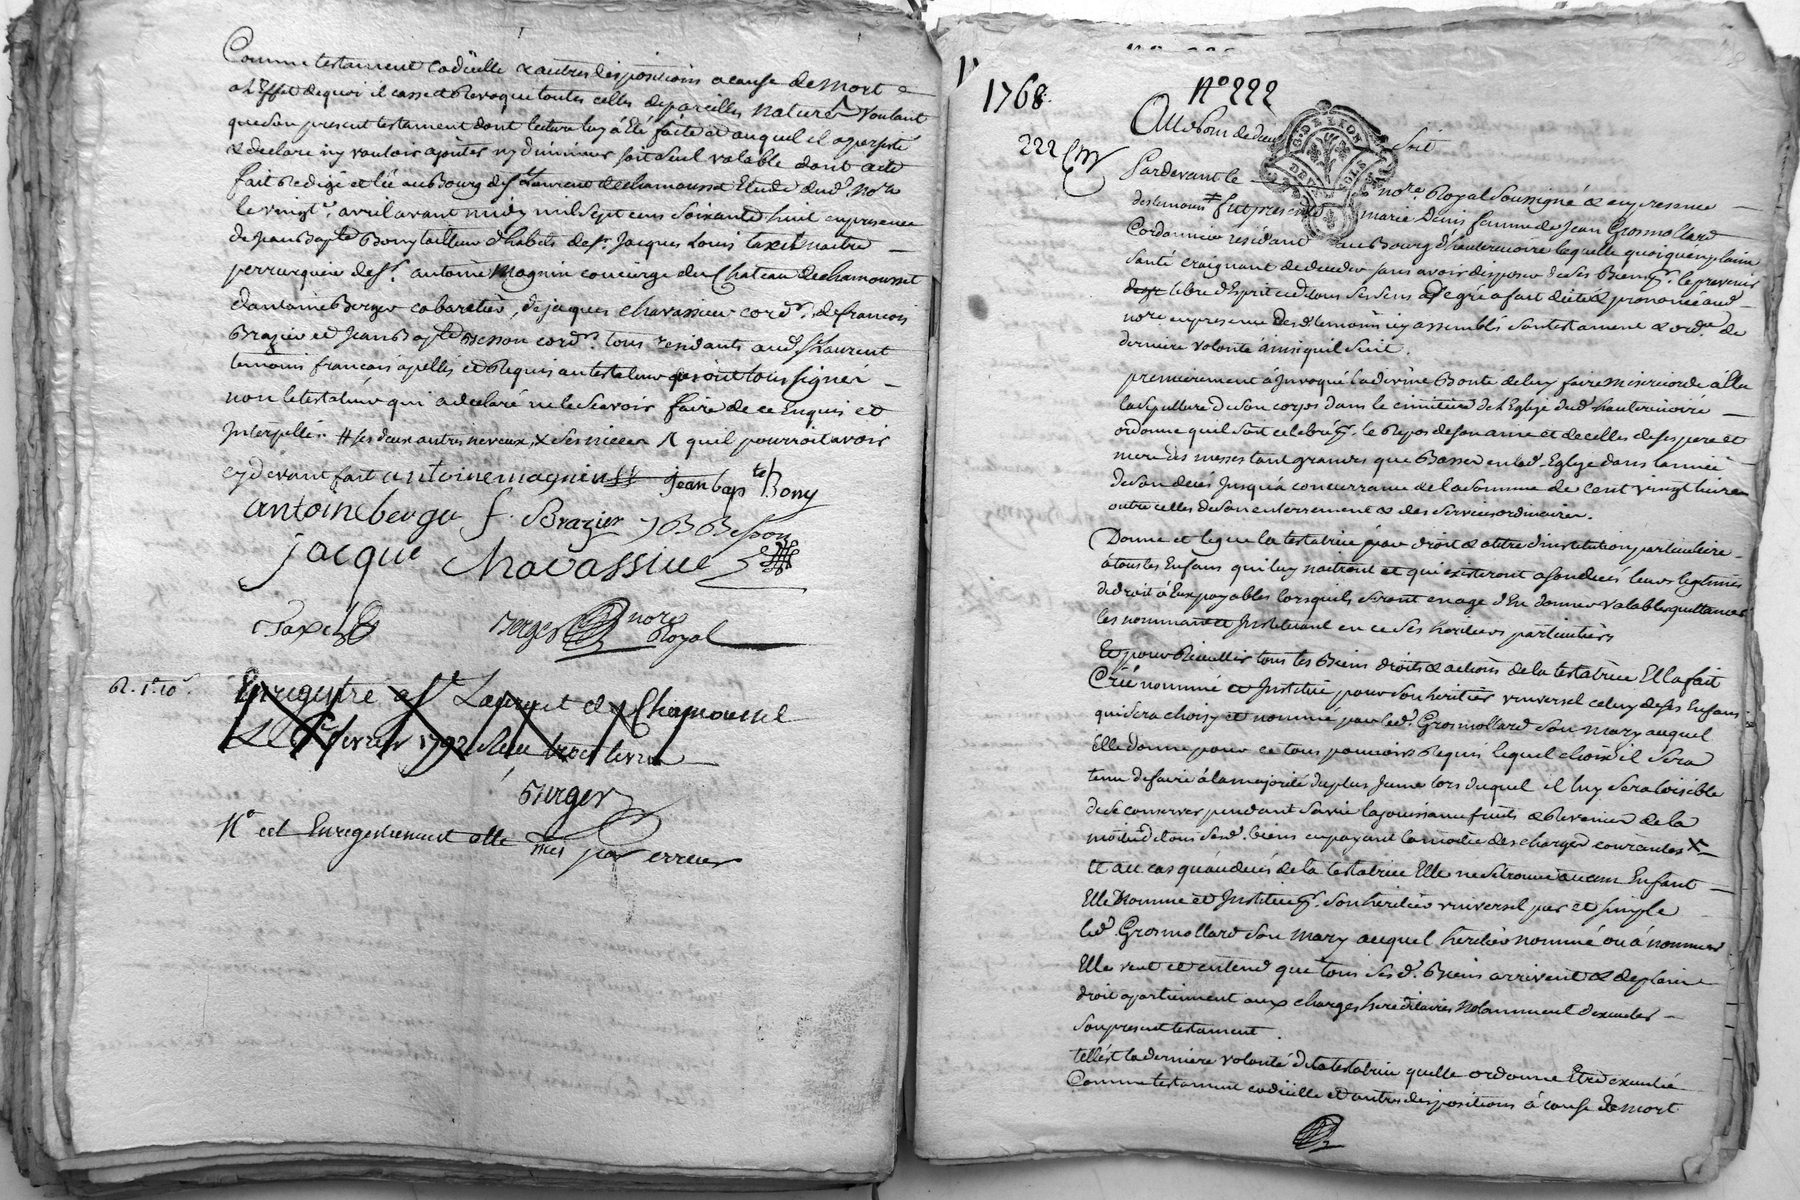 Comme testament codicille & autres dispositions a cause de mort
a L'Effet dequoi il casse et Revoque toutes celles depareilles Nature Voulant
que son present testament dont lecture luy à Eté faite et auquel il a persisté
& declare ny vouloir ajouter ny diminuer soit seul valable dont acte
fait Redigé et lû au Bourg de St Laurent de chamousset Etude dud. No.re
le vingt avril avant midy mil sept cens soixante huit en presence
de Jean Bapte Bony tailleur d'habits de Sr. Jacques Louis taxil maitre
perruquier de Sr. antoine Magnin concierge du Chateau de chamousset
d'antoine Berger cabaretier, de jaques chavassieu cord.r, de francois
Brazier et Jean Bapte Besson cord.r tous residants aud. St Laurent
temoins francois apellés et Requis au testateur qui ont tous signéz
non le testateur qui a declaré ne le scavoir faire de ce Enquis et
Interpellé. # ses deux autres neveux, & ses nieces ^ quil pourroit avoir
cy devant fait antoinemagnin jean bapte Bony
antoineberger f. Brazier J B Besson
jacque Chavassiue
Taxil
Berger nore Royal
R. 1# 10s.
Enregistré a St Laurent de Chamousset
Le fevrier 1792 Recu trois livres
Berger
Na cet Enregistrement este mis par erreur
1768.
N° 222
222
G. DE LYON
Au Nom de dieu soit
Pardevant le no.re Royal soussigné & en presence
des temoins # fut presente marie Denis femme de Jean Grosmollard
Cordonnier résidant au Bourg d'hauterivoire laquelle quoiqu'en plaine
santé craignant de deceder sans avoir disposer de ses Biens le prevenir
libre d'Esprit et de tous ses sens a de gré a fait dicté & prononcé aud.
no.re en presence desd. temoins icy assemblés son testament & ord.ce de
derniere volonté ainsi quil suit.
premierement à Invoqué la divine Bonté de luy faire misericorde àlu
la sepulture de son corps dans le cimitière de l'Eglise dud. hauterivoire
ordonne quil soit celebré p.r le Repos de son ame et de celles de ses pere et
mere des messes tant grandes que Basses en lad. Eglise dans l'année
de son decés Jusqu'à concurrance de la somme de cent vingt livres
outre celles de son enterrement & des services ordinaires.
Donne et legue la testatrice pour droit & a titre d'institution particuliere
à tous les Enfans qui luy naitront et qui existeront a son decés leurs legitimes
de droit à Eux payables lorsquils seront en age d'En donner valables quittances
les nommant et Instituant en ce ses héritiers particuliers
Et pour Recueillir tous les Biens droits & actions de la testatrice Ell'a fait
Créé nommé et Institué pour son heritier universel celuy de ses Enfans
qui sera choisy et nommé par led. Grosmollard son mary auquel
Elle donne pour ce tous pouvoirs Requis lequel choix il sera
tenu de faire à la majorité du plus Jeune lors duquel il luy sera loisible
de se conserver pendant sa vie la jouissance fruits & Revenus de la
moitié de tous sesd. biens en payant la moitié des charges courantes X
Et au cas qu'au decés de la testatrice Elle ne se trouve aucun Enfant
Elle Nomme et Institue p.r son heritier universel pur et simple
led. Grosmollard son mary auquel héritier nommé ou à nommer
Elle veut et entend que tous sesd. Biens arrivent & de plain
droit apartiennent aux charges héréditaires Notamment d'executer
son present testament.
tell'est la derniere volonté de la testatrice quelle ordonne Etre executée
Comme testament codicille et autres dispositions à cause de mort